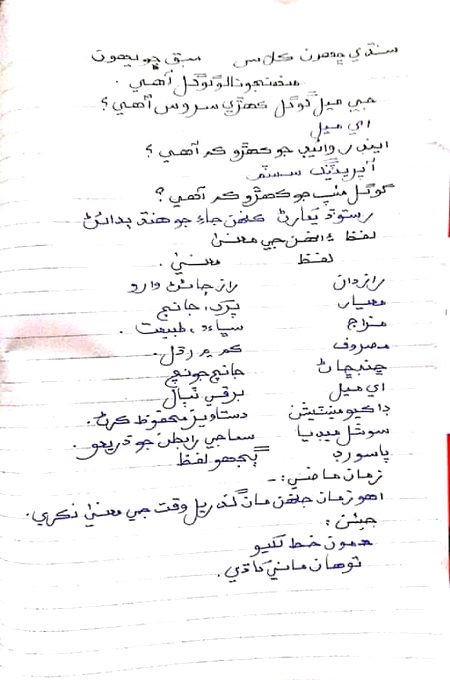 سنڌي چھرن ڪلاس سبق چوويھون
مضمنجونالوگوگل آهي.
جي ميل گوگل ڪهڙي سروس آهي؟
اي ميل
اينڊ رائيڊ جو ڪهڙو ڪم آهي؟
آپريٽنگ سسٽم
گوگل مئپ جو ڪهڙو ڪم آهي؟
رستو ڏيکارڻ ڪنهن جاءِ جو هنڌ ٻڌائڻ
لفظ ۽ انهن جي معنيٰ
لفظ معنيٰ.
رازدان راز جائڻ وارو
معيار پرک، جانچ
مزاج سڀاءُ، طبيعت.
مصروف ڪم ۾ رڌل.
ڇنڊڇاڻ جانچ جونچ
اي ميل برقي ٽپال
ڊاڪيومينٽيشن دستاويز محفوظ ڪرڻ.
سوشل ميڊيا سماجي رابطن جو ذريعو.
پاسورڊ ڳجھو لفظ
زمان ماضي:-
اهو زمان جنهن مان گذريل وقت جي معنيٰ نڪري.
جيئن:
همون خط لکيو
توهان ماني کاڌي.